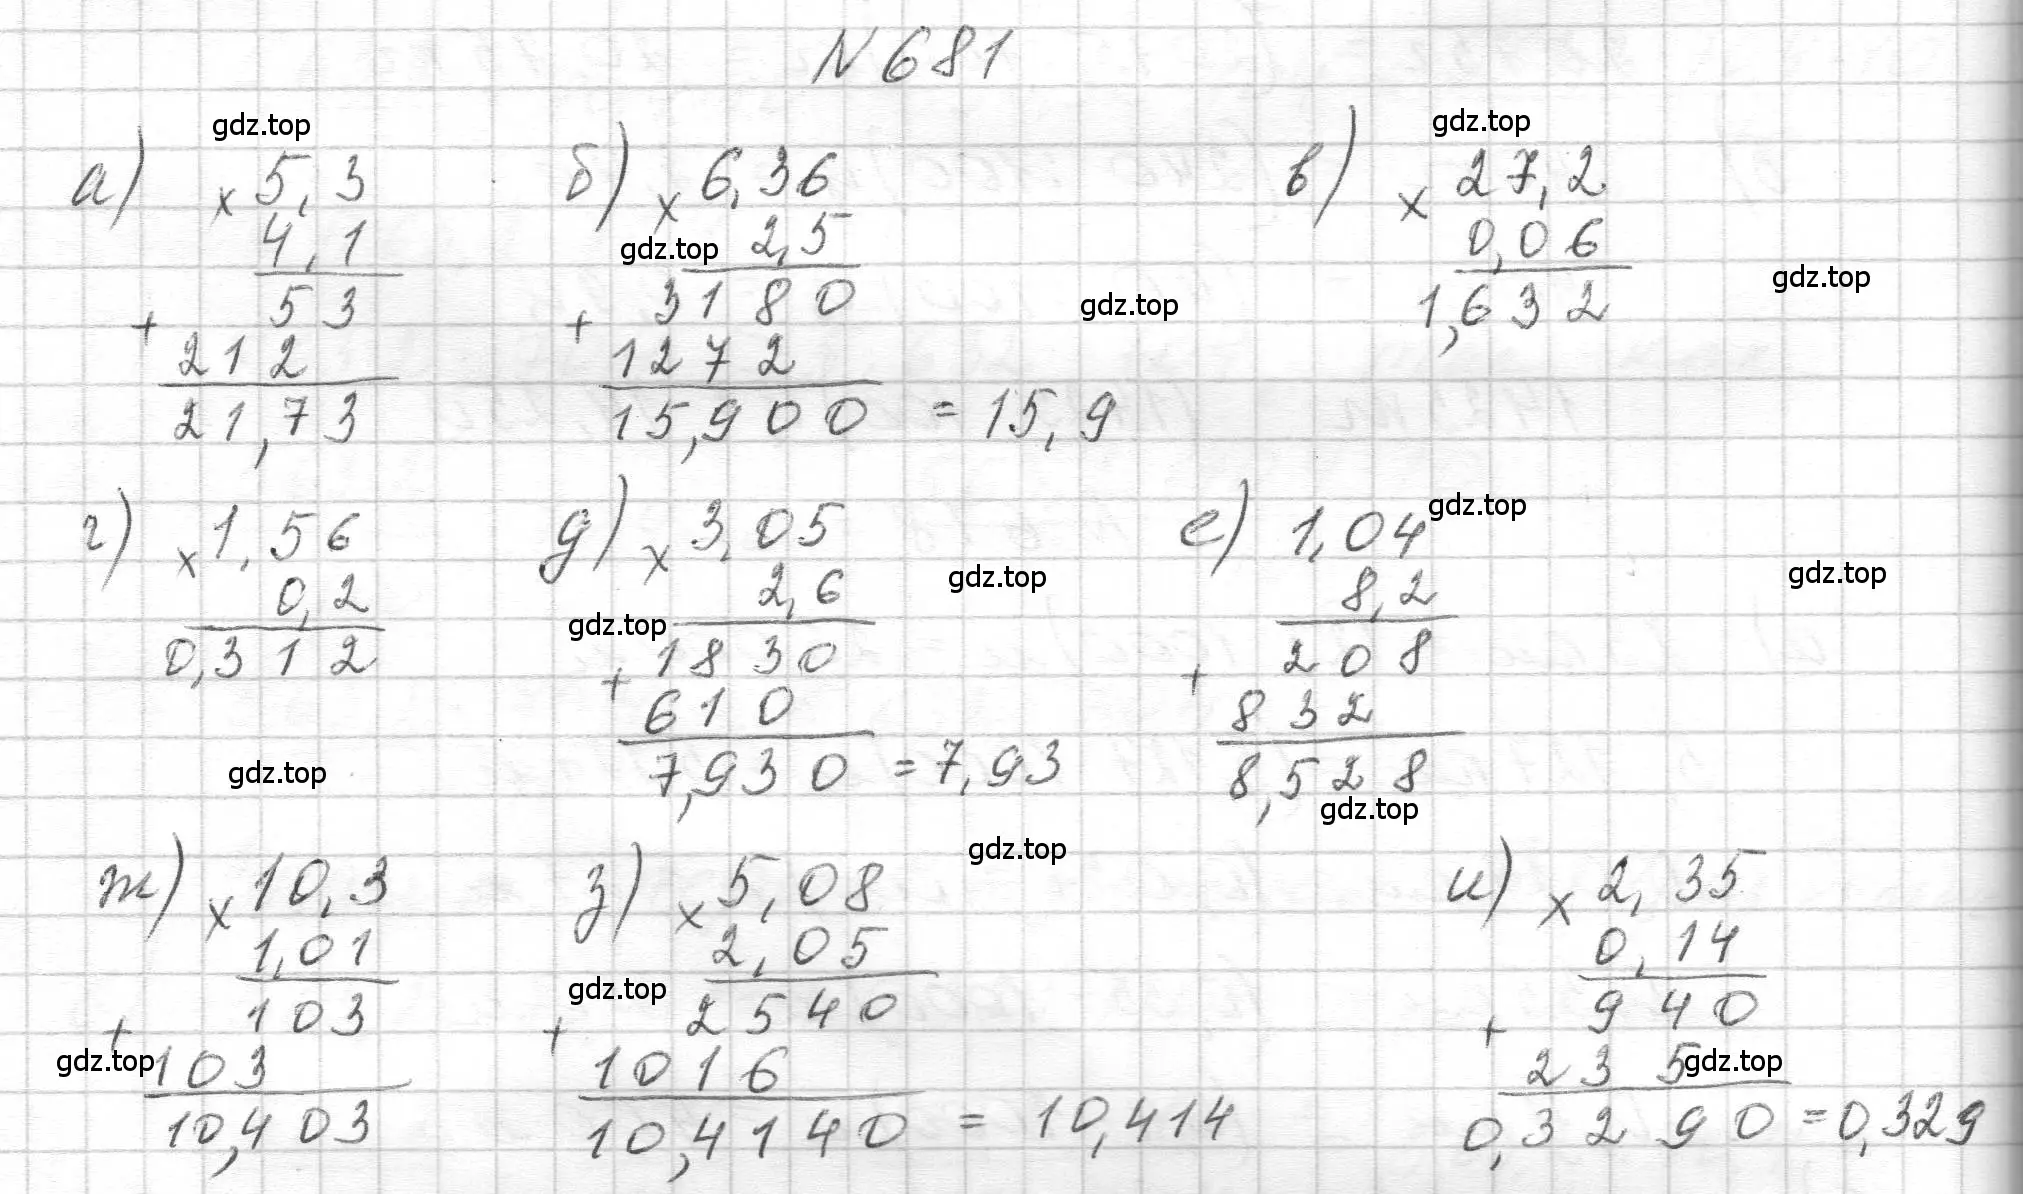 N 681
gdz.top gdz.top
а) × 5,3 б) × 6,36 в) × 27,2
4,1 gdz.top 2,5 0,06
gdz.top gdz.top
53 3180 1,632
+ +
212 1272
21,73 15,900 = 15,9
г) × 1,56 д) × 3,05 е) 1,04 gdz.top
gdz.top gdz.top
0,2 2,6 8,2
gdz.top
0,312 1830 208
+ +
610 832
gdz.top 7,930 = 7,93 8,528
gdz.top
gdz.top
ж) × 10,3 з) × 5,08 и) × 2,35
1,01 2,05 0,14
gdz.top
103 2540 940
+ + +
gdz.top 103 1016 235 gdz.top
10,403 10,4140 = 10,414 0,3290 = 0,329